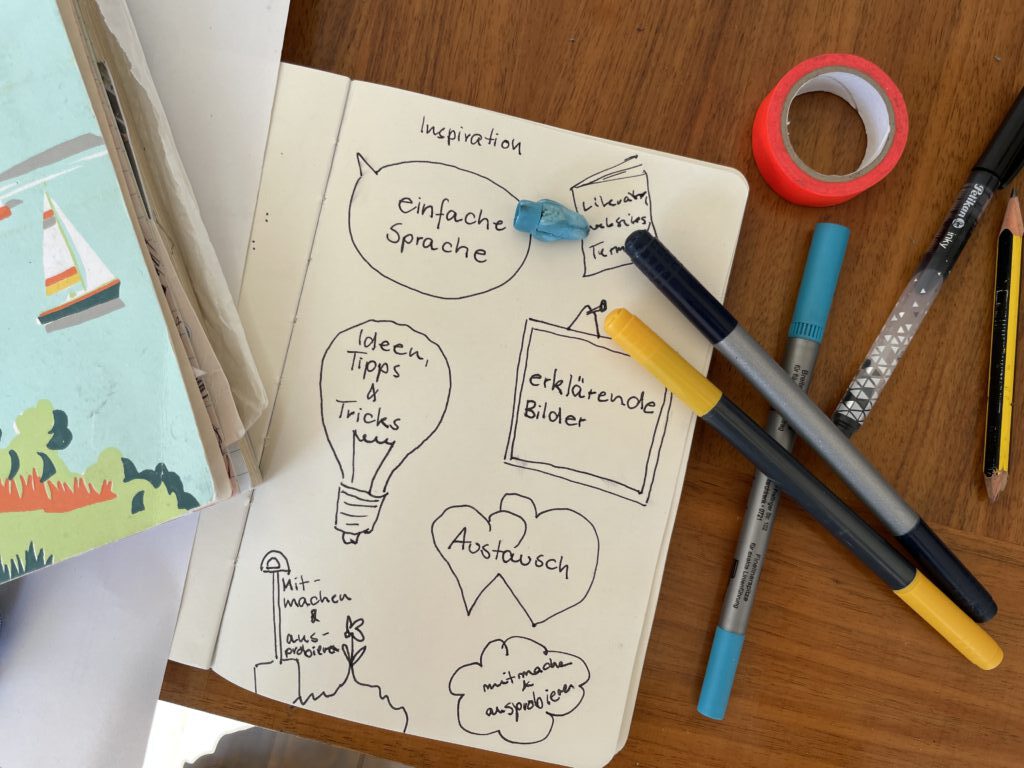 Inspiration
einfache
Sprache
Literatur,
websites,
Ideen,
Tipps
&
Tricks
erklärende
Bilder
Austausch
Mit-
machen
&
aus-
probieren
mitmachen
&
ausprobieren
Pelikan inky